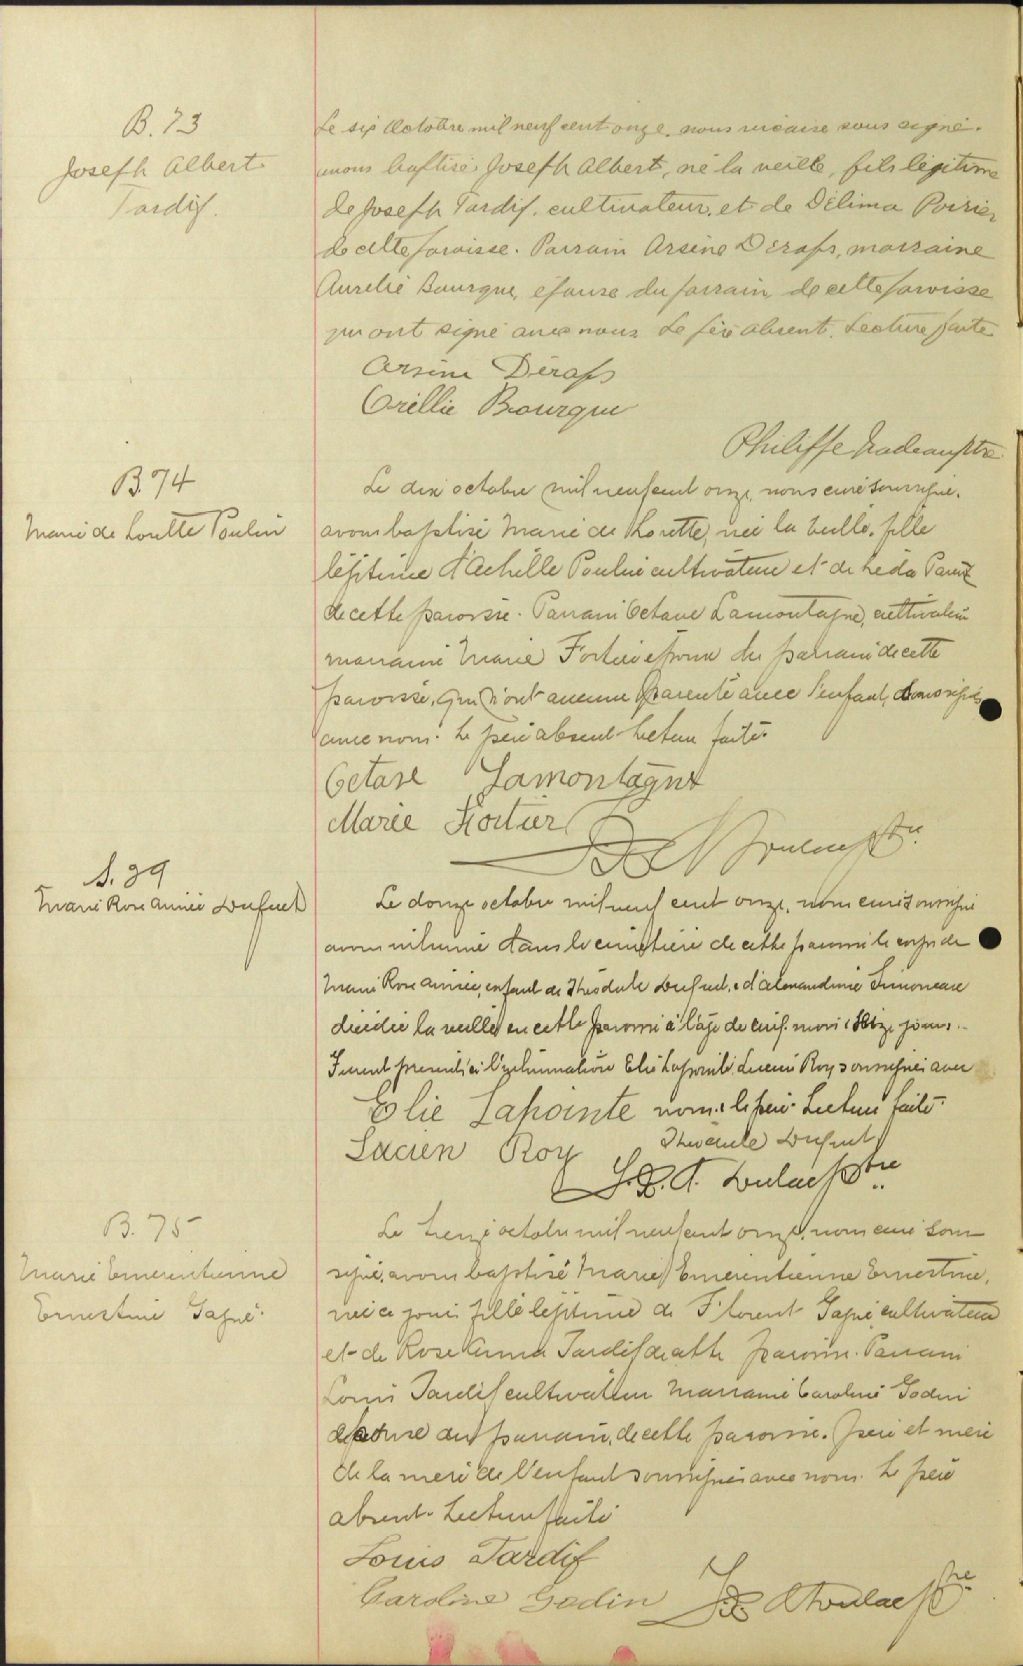 B. 73
Joseph Albert
Tardif.
Le six Octobre mil neuf cent onze, nous vicaire sous signé.
avons baptisé Joseph Albert, né la veille, fils légitime
de Joseph Tardif, cultivateur, et de Délima Poirier
de cette paroisse. Parrain Arsène Déraps, marraine
Aurelie Bourque, épouse du parrain, de cette paroisse
qui ont signé avec nous. Le père absent. Lecture faite
Arsène Déraps
Orellie Bourque
Philippe Nadeau ptre
B. 74
Marie de Lorette Poulin
Le dix octobre mil neuf cent onze, nous curé soussigné.
avons baptisé Marie de Lorette, née la veille, fille
légitime d'Achille Poulin cultivateur et de Léda Parent
de cette paroisse. Parrain Octave Lamontagne, cultivateur
marraine Marie Fortier épouse du parrain de cette
paroisse, qui n'ont aucune parenté avec l'enfant, soussignés
avec nous. Le père absent. Lecture faite.
Octave Lamontagne
Marie Fortier
Dulac Ptre
S. 39
Marie Rose Aimée Duquet
Le douze octobre mil neuf cent onze, nous curé soussigné
avons inhumé dans le cimetière de cette paroisse le corps de
Marie Rose Aimée, enfant de Théodule Duquet, & d'Alexandrine Simoneau
décédée la veille en cette paroisse à l'âge de cinq mois & seize jours.
Furent présents à l'inhumation Elie Lapointe, Lucien Roy soussignés avec
Elie Lapointe nous & le père. Lecture faite.
Lucien Roy Théodule Duquet
J. A. Dulac Ptre
B. 75
Marie Emerentienne
Ernestine Gagné
Le treize octobre mil neuf cent onze, nous curé sous-
signé, avons baptisé Marie Emerentienne Ernestine,
née ce jour, fille légitime de Florent Gagné, cultivateur
et de Rose Anna Tardif de cette paroisse. Parrain
Louis Tardif cultivateur Marraine Caroline Godin
épouse du parrain, de cette paroisse. père et mère
de la mère de l'enfant soussignés avec nous. Le père
absent. Lecture faite
Louis Tardif
Caroline Godin Dulac Ptre